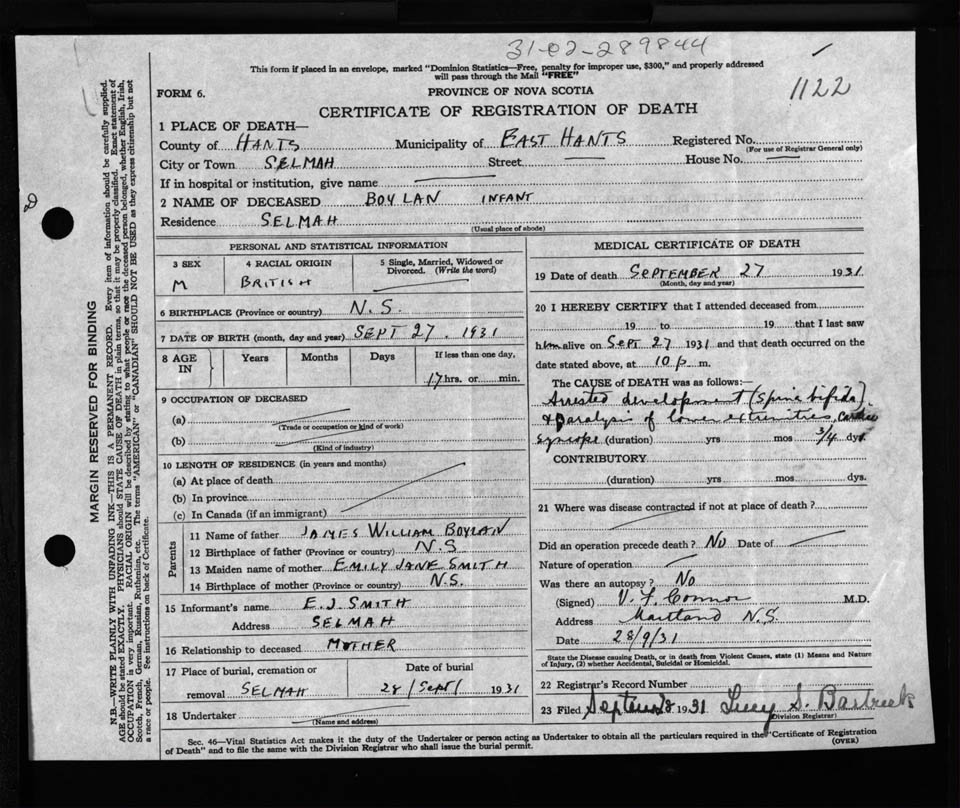 31-02-289844
1122
This form if placed in an envelope, marked "Dominion Statistics—Free, penalty for improper use, $300," and properly addressed
will pass through the Mail "FREE"
FORM 6.
PROVINCE OF NOVA SCOTIA
CERTIFICATE OF REGISTRATION OF DEATH
1 PLACE OF DEATH—
County of HANTS Municipality of EAST HANTS Registered No.
(For use of Registrar General only)
City or Town SELMAH Street House No.
If in hospital or institution, give name
2 NAME OF DECEASED BOYLAN INFANT
Residence SELMAH
(Usual place of abode)
PERSONAL AND STATISTICAL INFORMATION
3 SEX
M
4 RACIAL ORIGIN
BRITISH
5 Single, Married, Widowed or
Divorced. (Write the word)
6 BIRTHPLACE (Province or country) N.S.
7 DATE OF BIRTH (month, day and year) SEPT 27. 1931
8 AGE
IN
Years
Months
Days
If less than one day,
17 hrs. or min.
9 OCCUPATION OF DECEASED
(a)
(Trade or occupation or kind of work)
(b)
(Kind of industry)
10 LENGTH OF RESIDENCE (in years and months)
(a) At place of death
(b) In province
(c) In Canada (if an immigrant)
Parents
11 Name of father JAMES WILLIAM BOYLAN
12 Birthplace of father (Province or country) N.S
13 Maiden name of mother EMILY JANE SMITH
14 Birthplace of mother (Province or country) N.S.
15 Informant's name E.J. SMITH
Address SELMAH
16 Relationship to deceased MOTHER
17 Place of burial, cremation or
removal SELMAH
Date of burial
28/Sept/ 1931
18 Undertaker
(Name and address)
MEDICAL CERTIFICATE OF DEATH
19 Date of death SEPTEMBER 27 1931.
(Month, day and year)
20 I HEREBY CERTIFY that I attended deceased from
19 to 19 that I last saw
him alive on SEPT 27 1931 and that death occurred on the
date stated above, at 10 p m.
The CAUSE of DEATH was as follows:—
Arrested development (Spina bifida)
& paralysis of lower extremities, Cardiac
Syncope (duration) yrs mos 3/4 dys.
CONTRIBUTORY
(duration) yrs mos. dys.
21 Where was disease contracted if not at place of death?
Did an operation precede death? No Date of
Nature of operation
Was there an autopsy? No
(Signed) V. L. Connor M.D.
Address Maitland N.S.
Date 28/9/31
State the Disease causing Death, or in death from Violent Causes, state (1) Means and Nature
of Injury, (2) whether Accidental, Suicidal or Homicidal.
22 Registrar's Record Number
23 Filed, 1931 Lucy S.
Division Registrar)
Sec. 46—Vital Statistics Act makes it the duty of the Undertaker or person acting as Undertaker to obtain all the particulars required in the "Certificate of Registration
of Death" and to file the same with the Division Registrar who shall issue the burial permit.
(OVER)
MARGIN RESERVED FOR BINDING
N.B.—WRITE PLAINLY WITH UNFADING INK—THIS IS A PERMANENT RECORD. Every item of information should be carefully supplied.
AGE should be stated EXACTLY. PHYSICIANS should STATE CAUSE OF DEATH in plain terms, so that it may be properly classified. Exact statement of
OCCUPATION is very important. RACIAL ORIGIN will be described by stating to what people or race the deceased person belonged, whether English, Irish,
Scotch, French, German, Russian, Ruthenian, etc. The terms "AMERICAN" or "CANADIAN" SHOULD NOT BE USED as they express citizenship but not
a race or people. See instructions on back of Certificate.